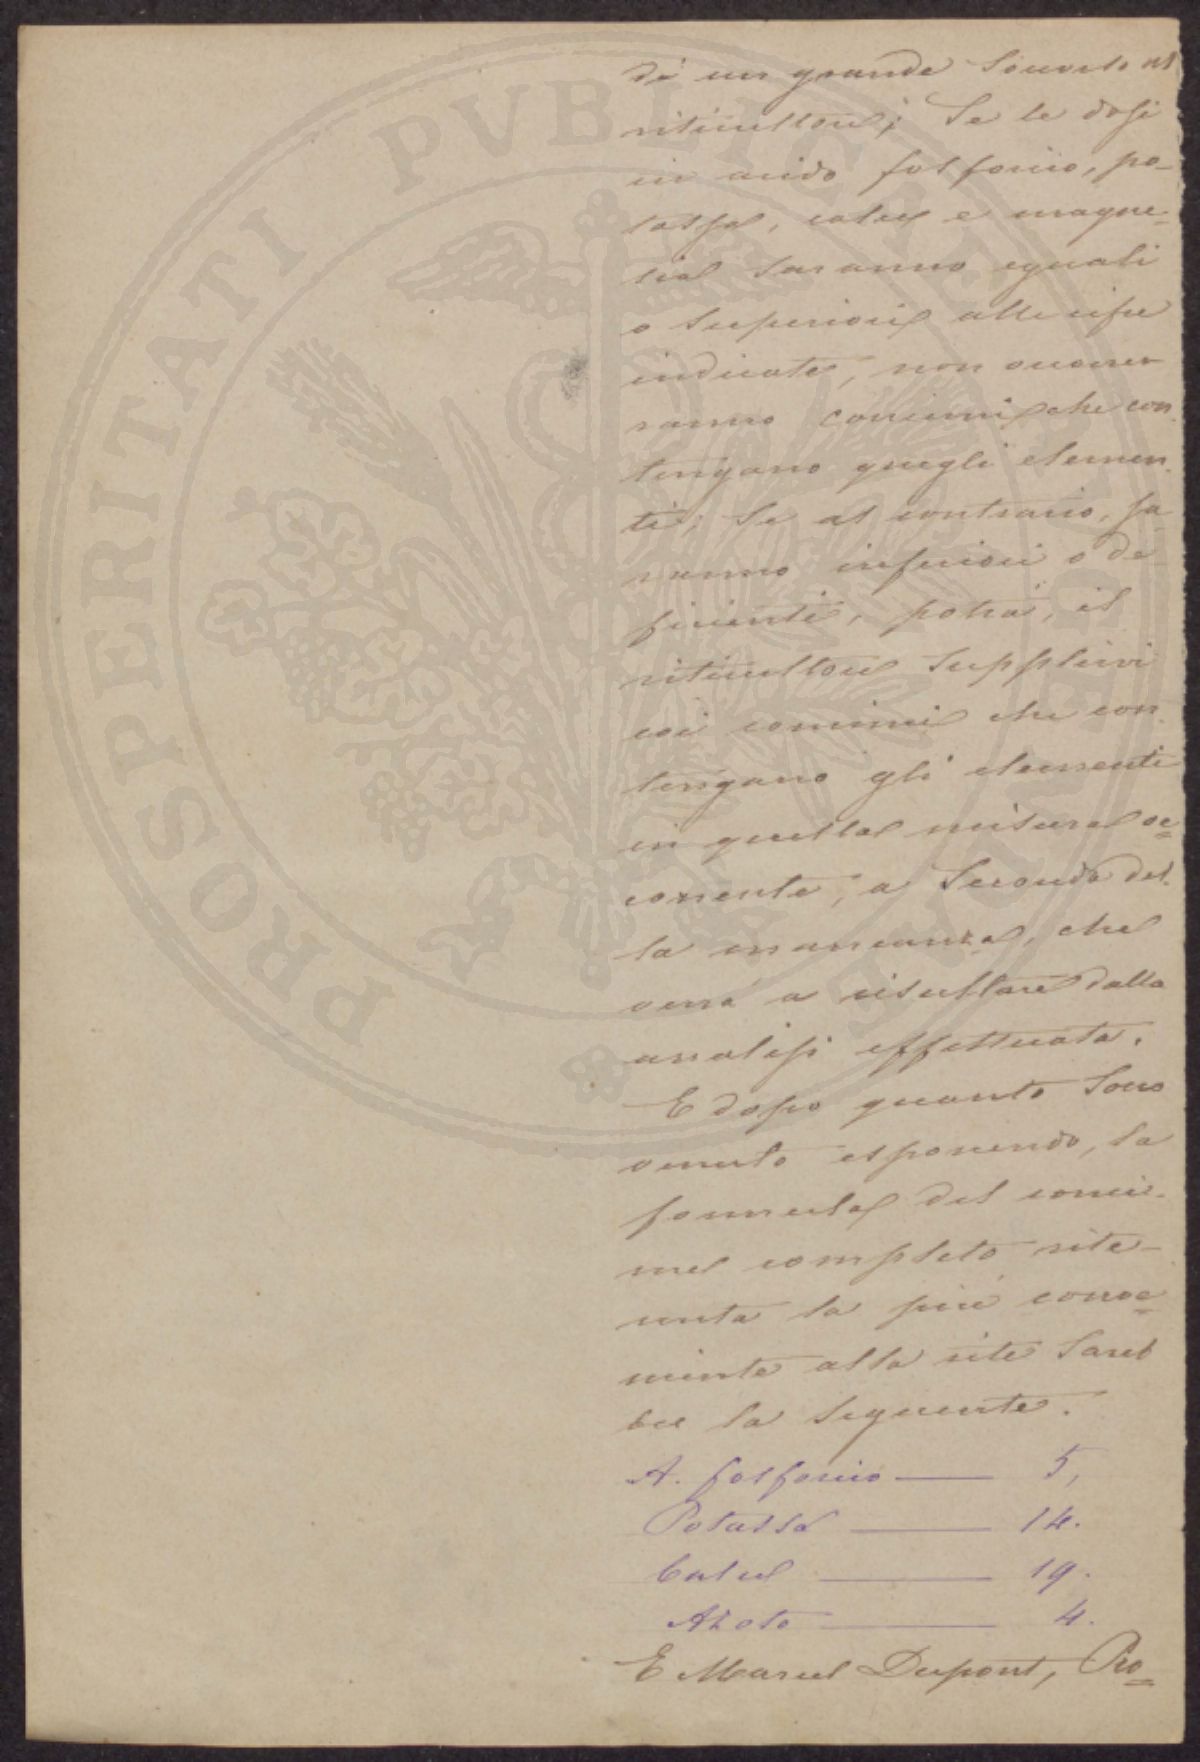 di un grande Giovato al
viticultore; Se le dosi
in acido fosforico, po-
tassa, calce e magne-
sia saranno eguali
o superiori alle cifre
indicate, non occorre-
ranno concimi che con
tengano quegli elemen-
ti; Se al contrario, sa
ranno inferiori o de
ficienti, potrà, il
viticultore supplirvi
coi concimi che con
tengano gli elementi
in quella misura oc=
corrente, a Seconda del-
la mancanza, che
verrà a risultare dalla
analisi effettuata.
E dopo quanto Sono
venuto esponendo, la
formula del conci-
me completo rite-
nuta la più conve=
niente alla vite Sareb
be la seguente.
A. fosforico — 5,
Potassa — 14.
Calce — 19.
Azoto — 4.
E Marcel Dupont, Pro=
PROSPERITATI PVBLICAE